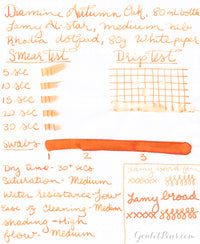 Diamine Autumn Oak, 80 ml bottle
Lamy Al-Star, medium nib
Rhodia dotpad, 80g White paper
Smear Test
Drip Test
5 sec
10 sec
15 sec
20 sec
30 sec
Swabs
1 2 3
Dry time - 30+ secs
Saturation - Medium
Water resistance - Low
Ease of Cleaning - Medium
Shading - High
Flow - Medium
Lamy broad
xxxxx
GouletPens.com